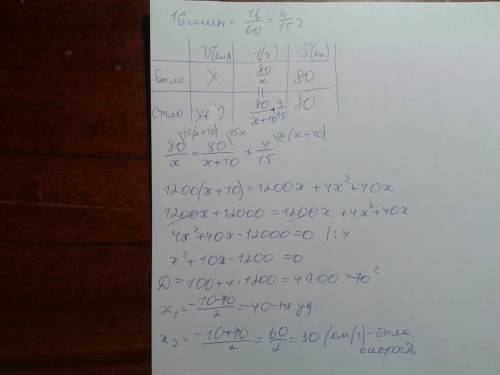 16 мин = 16/60 = 4/15 ч
V(км/ч) t(ч) S(км)
Было x 80/x 80
Стало x+ 80/x+10 + 4/15 80
15(x+10) 15x x(x+10)
80/x = 80/x+10 + 4/15
1200(x+10) = 1200x + 4x² + 40x
1200x + 12000 = 1200x + 4x² + 40x
4x² + 40x - 12000 = 0 /:4
x² + 10x - 1200 = 0
D = 100 + 4 · 1200 = 4900 = 70²
x₁ = -10-70/2 = -40 - не уд.
x₂ = -10+70/2 = 60/2 = 30 (км/ч) - была
скорость